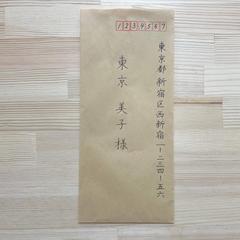 1234567
東京都新宿区西新宿一-二三四-五六
東京 美子 様